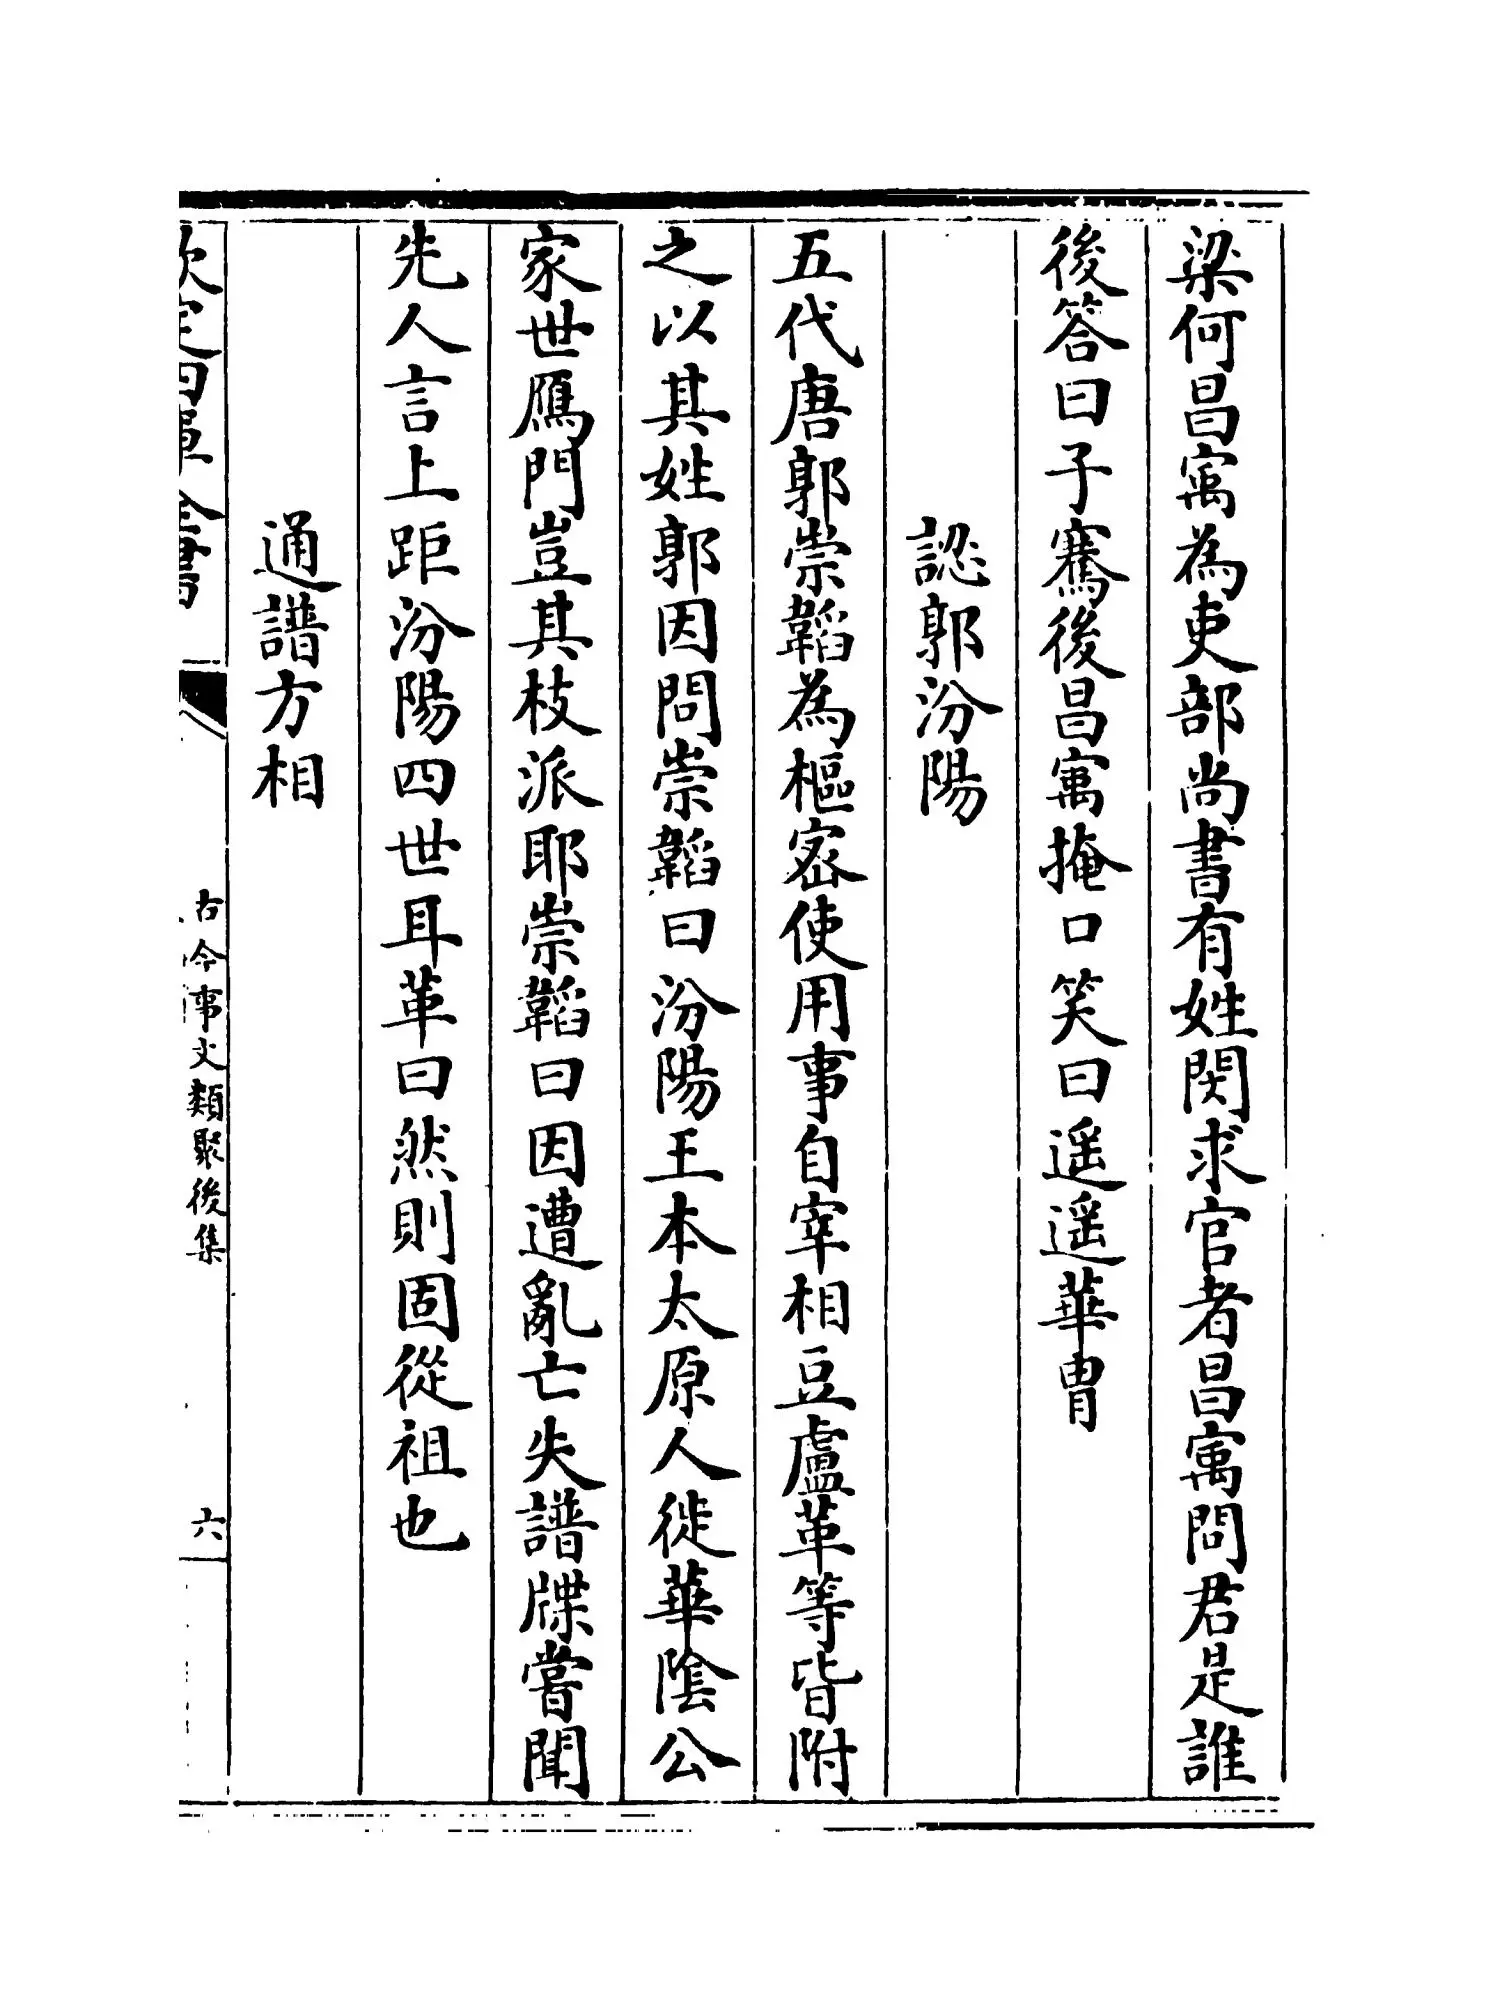 梁何昌㝢為吏部尚書有姓閔求官者昌㝢問君是誰
後答曰子騫後昌㝢掩口笑曰遥遥華胄
認郭汾陽
五代唐郭崇韜為樞密使用事自宰相豆盧革等皆附
之以其姓郭因問崇韜曰汾陽王本太原人徙華陰公
家世鴈門豈其枝派耶崇韜曰因遭亂亡失譜牒嘗聞
先人言上距汾陽四世耳革曰然則固從祖也
通譜方相
欽定四庫全書
古今事文類聚後集
六